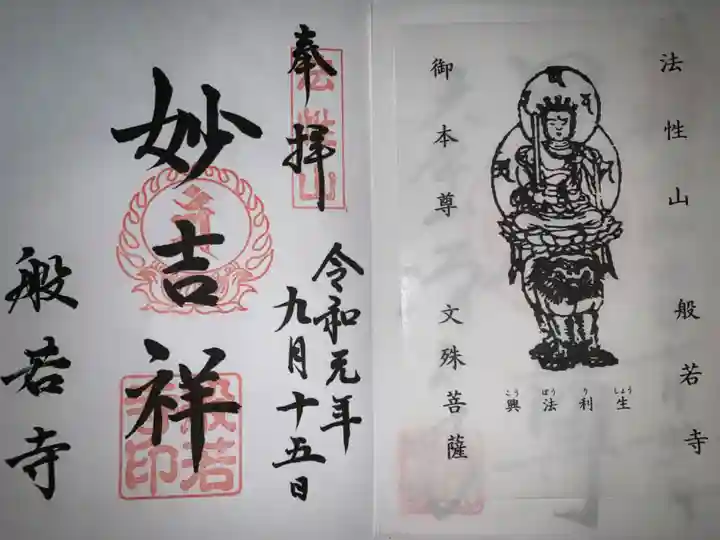 奉拝
法性山
令和元年
九月十五日
妙吉祥
般若寺
般若寺印
法性山 般若寺
御本尊 文殊菩薩
興法利生
こう ぼう り しょう